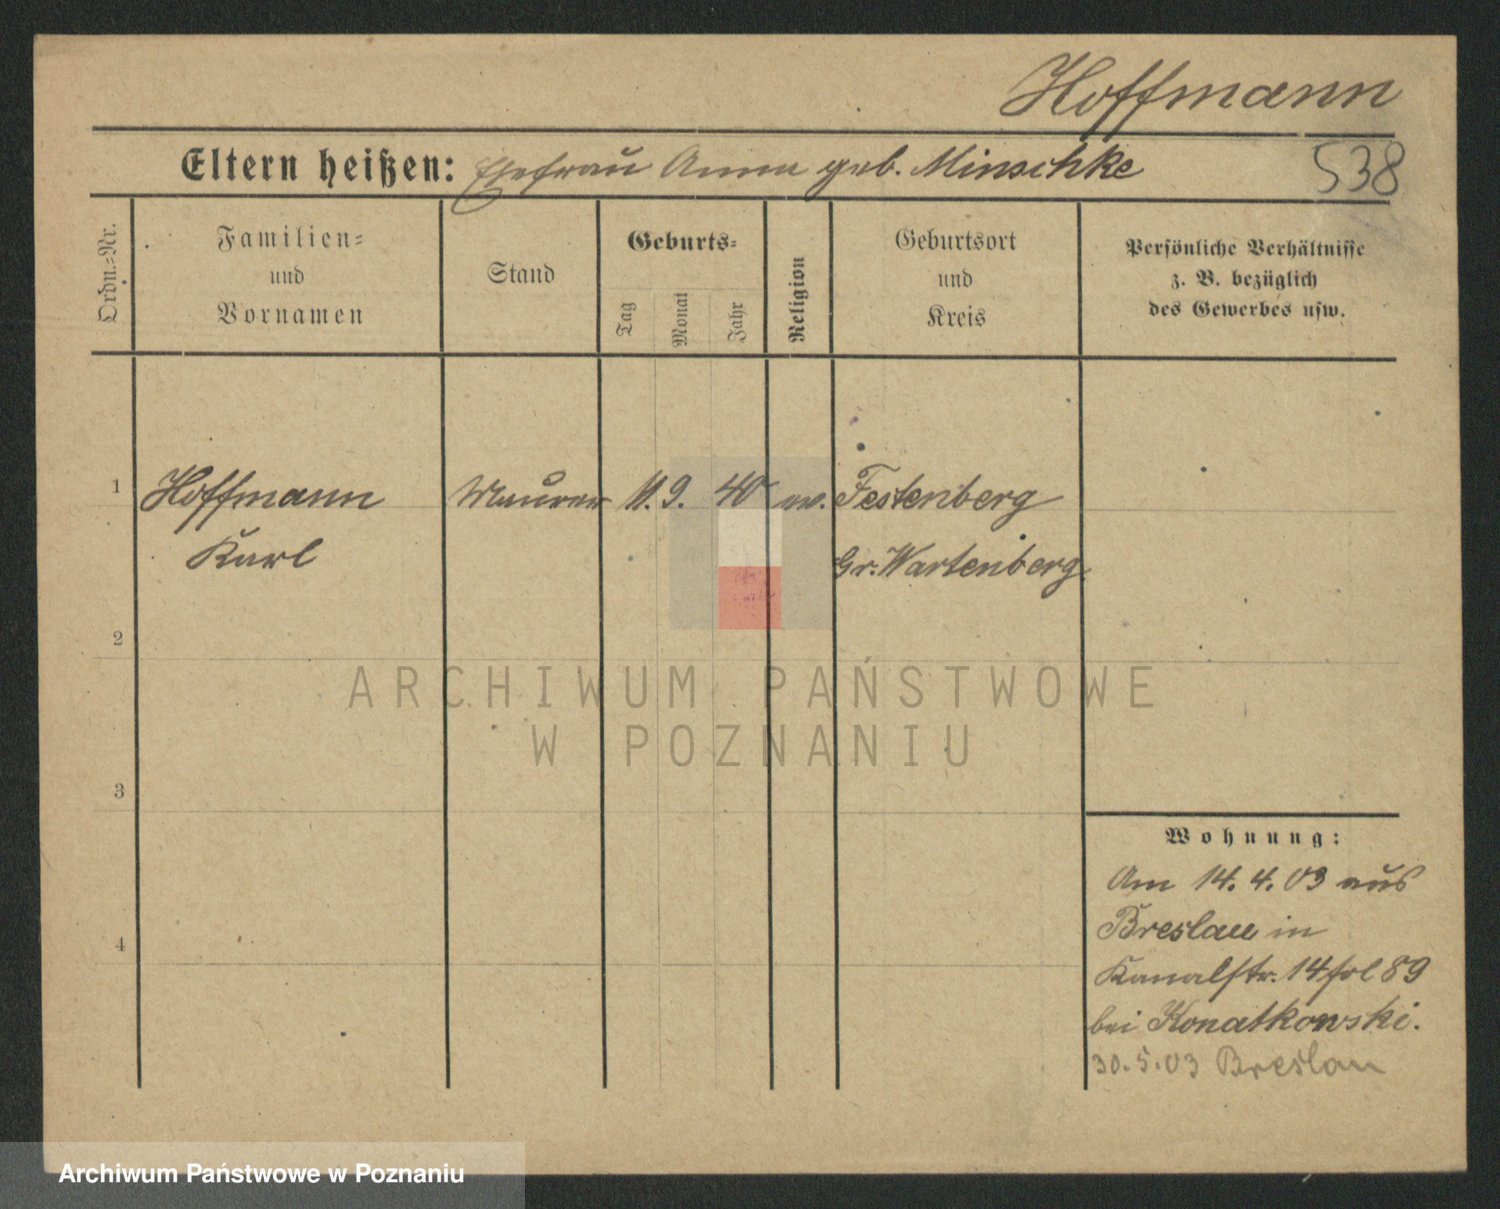 Hoffmann
Eltern heißen: Ehefrau Anna geb. Minschke
538
Ordn.-Nr.
Familien-
und
Vornamen
Stand
Geburts-
Tag
Monat
Jahr
Religion
Geburtsort
und
Kreis
Persönliche Verhältnisse
z. B. bezüglich
des Gewerbes usw.
1 Hoffmann Maurer 11. 9. 40 ev. Festenberg
Karl Gr. Wartenberg
2
ARCHIWUM PAŃSTWOWE
W POZNANIU
3
Wohnung:
Am 14. 4. 03 aus
Breslau in
4
Kanalstr. 14 fol 89
bei Konatkowski.
30. 5. 03 Breslau
Archiwum Państwowe w Poznaniu